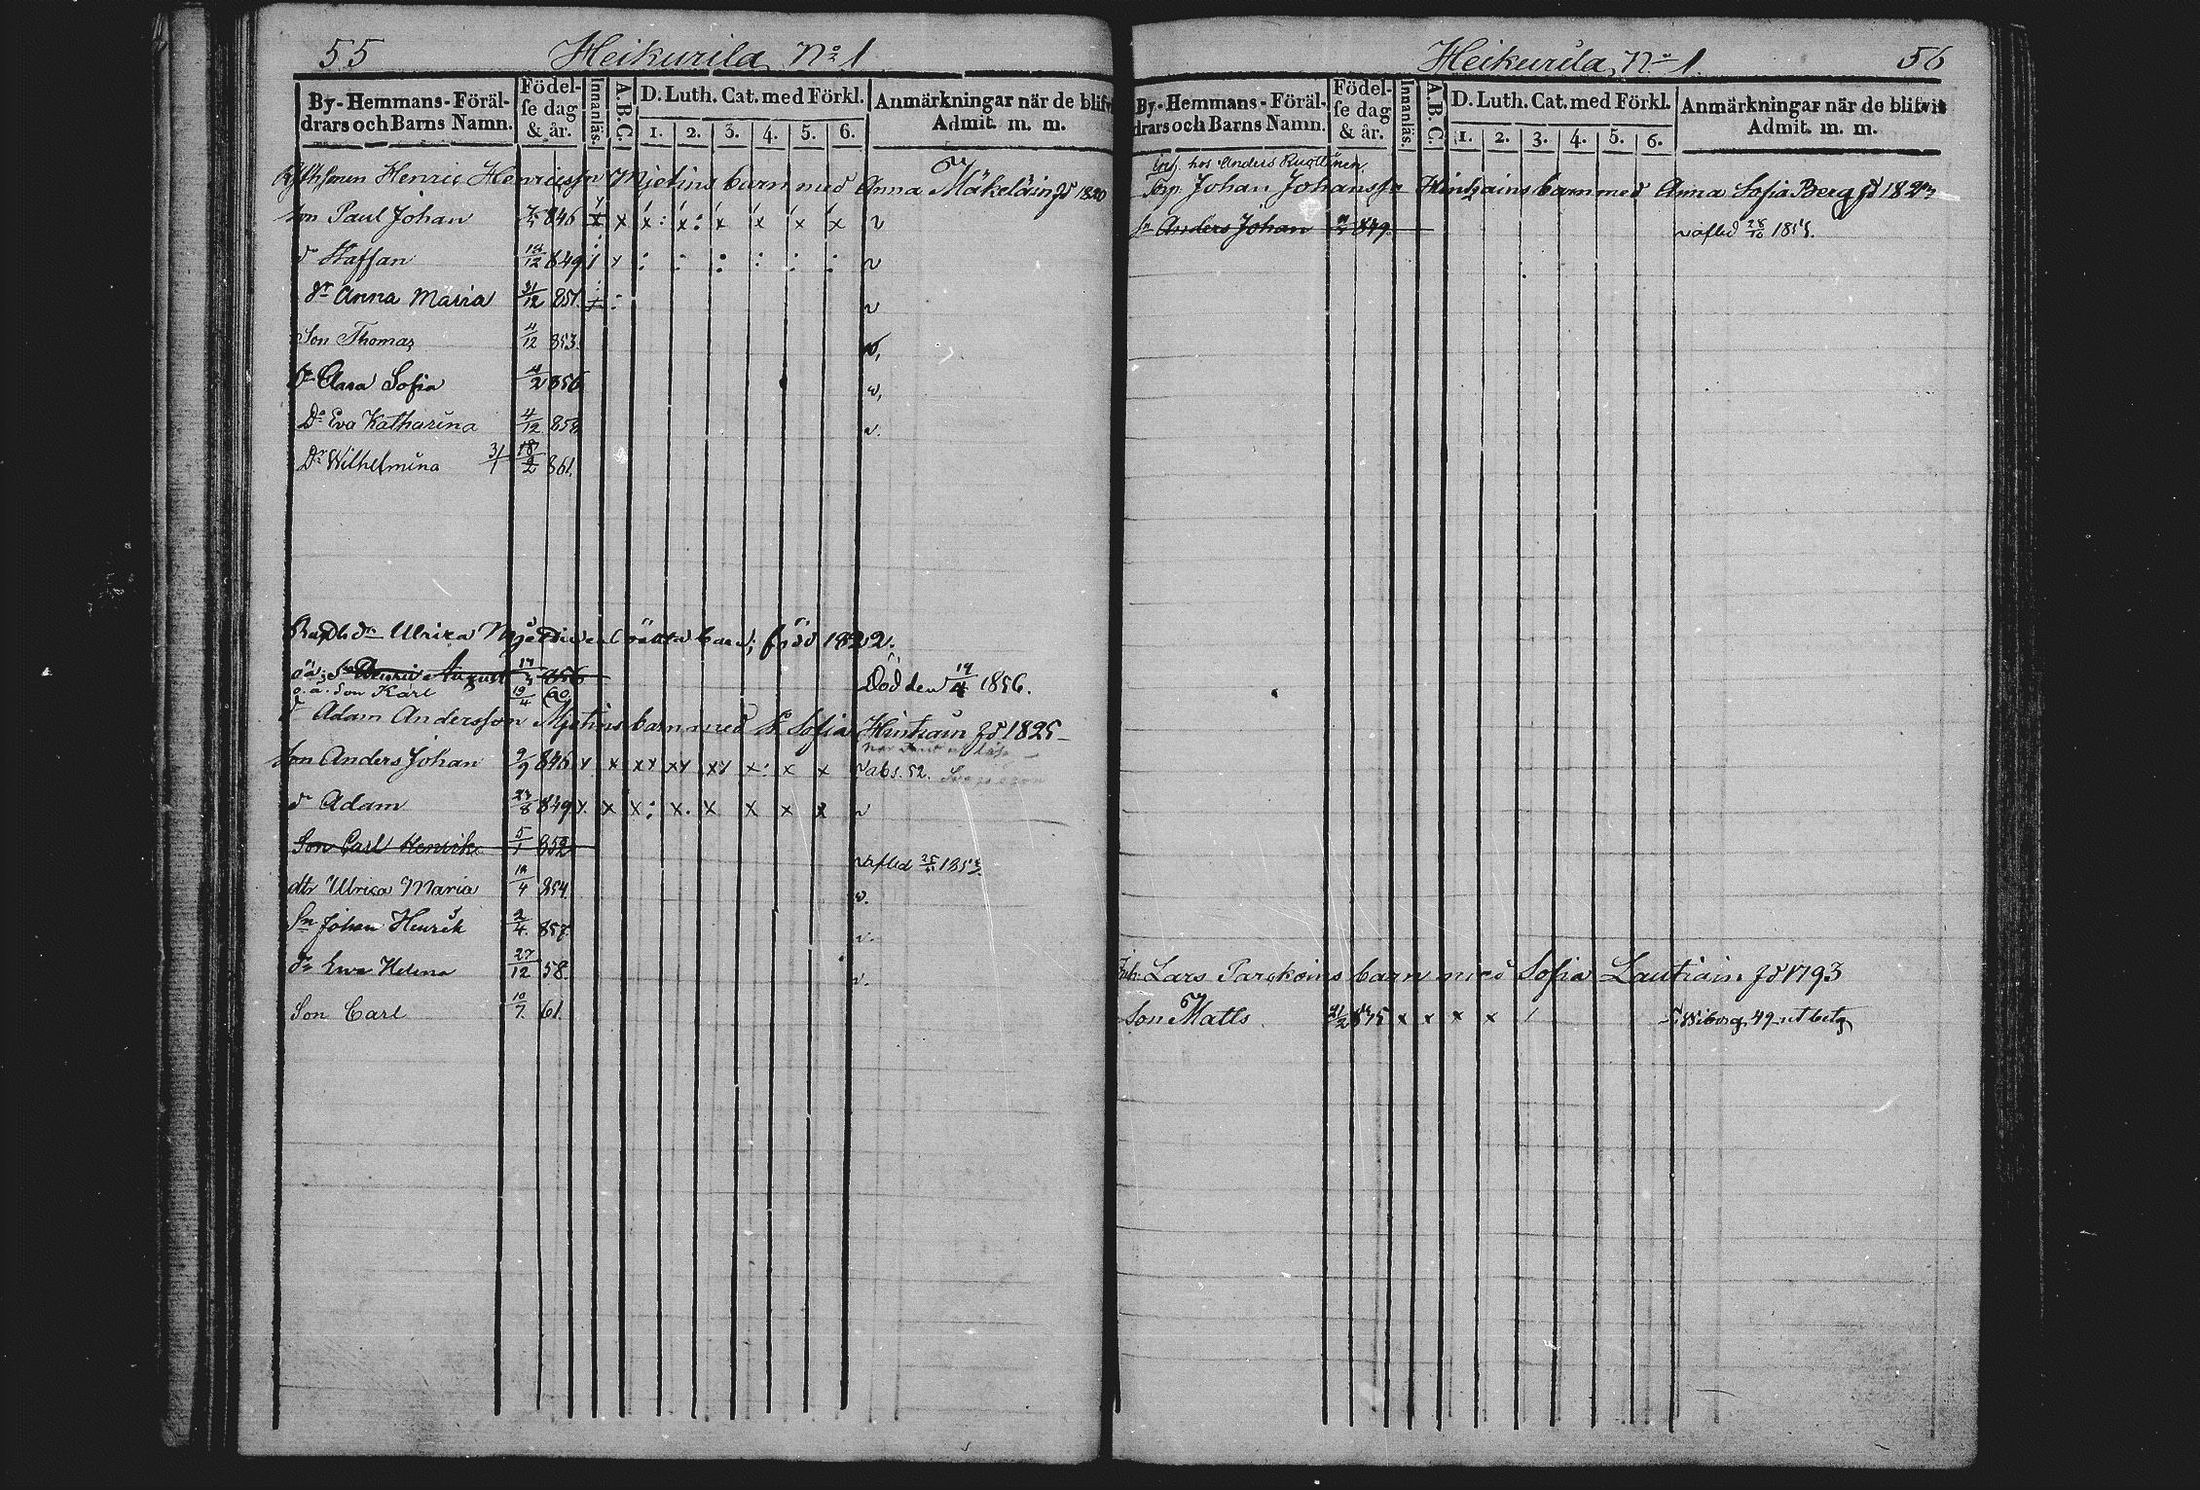 55 Heikurila No 1
By-Hemmans-Föräl-
drars och Barns Namn.
Födel-
se dag
& år.
Innanläs.
A.B.C.
D. Luth. Cat. med Förkl.
1. 2. 3. 4. 5. 6.
Anmärkningar när de blifvit
Admit. m. m.
Henric Henricsson Mjetins barn med Anna Mäkeläin fd 1820
Son Paul Johan 846 x x x: x: x x x x v
dr Staffan 12/12 849 v
dr Anna Maria 31/12 851. v
Son Thomas 4/12 853.
dr Clara Sofia 4/2 856
Dr Eva Katharina 4/12 858 v.
Dr Wilhelmina 3/1 18/2 861.
Ulrica oäkta barn, född 1822.
oä: August 17/3 856 Död den 14/4 1856.
o. ä. Son Karl 19/4 60.
dr Adam Andersson Mjetins barn med Sofia Hintsain fd 1825
Son Anders Johan 9/9 846 x x xx xx xx x: x x v abs. 52.
dr Adam 27/8 849 x. x x: x. x x x x v
Son Carl Henrik 5/1 852 v afled
dtr Ulrica Maria 12/4 854. v.
Sn Johan Henrik 2/4. 857. v.
dr Ewa Helena 27/12 58. v.
Son Carl 10/7. 61.
Heikurila No 1. 56
By-Hemmans-Föräl-
drars och Barns Namn.
Födel-
se dag
& år.
Innanläs.
A.B.C.
D. Luth. Cat. med Förkl.
1. 2. 3. 4. 5. 6.
Anmärkningar när de blifvit
Admit. m. m.
hos Anders Ruottinen
Johan Johansson Hintzains barn med Anna Sofia Berg fd
Sn Anders Johan 849. v afled 28/10 1855.
Lars Parckoins barn med Sofia Lautiain fd 1793
Son Matts 845 x x x x / Wiborg 49 ut betg